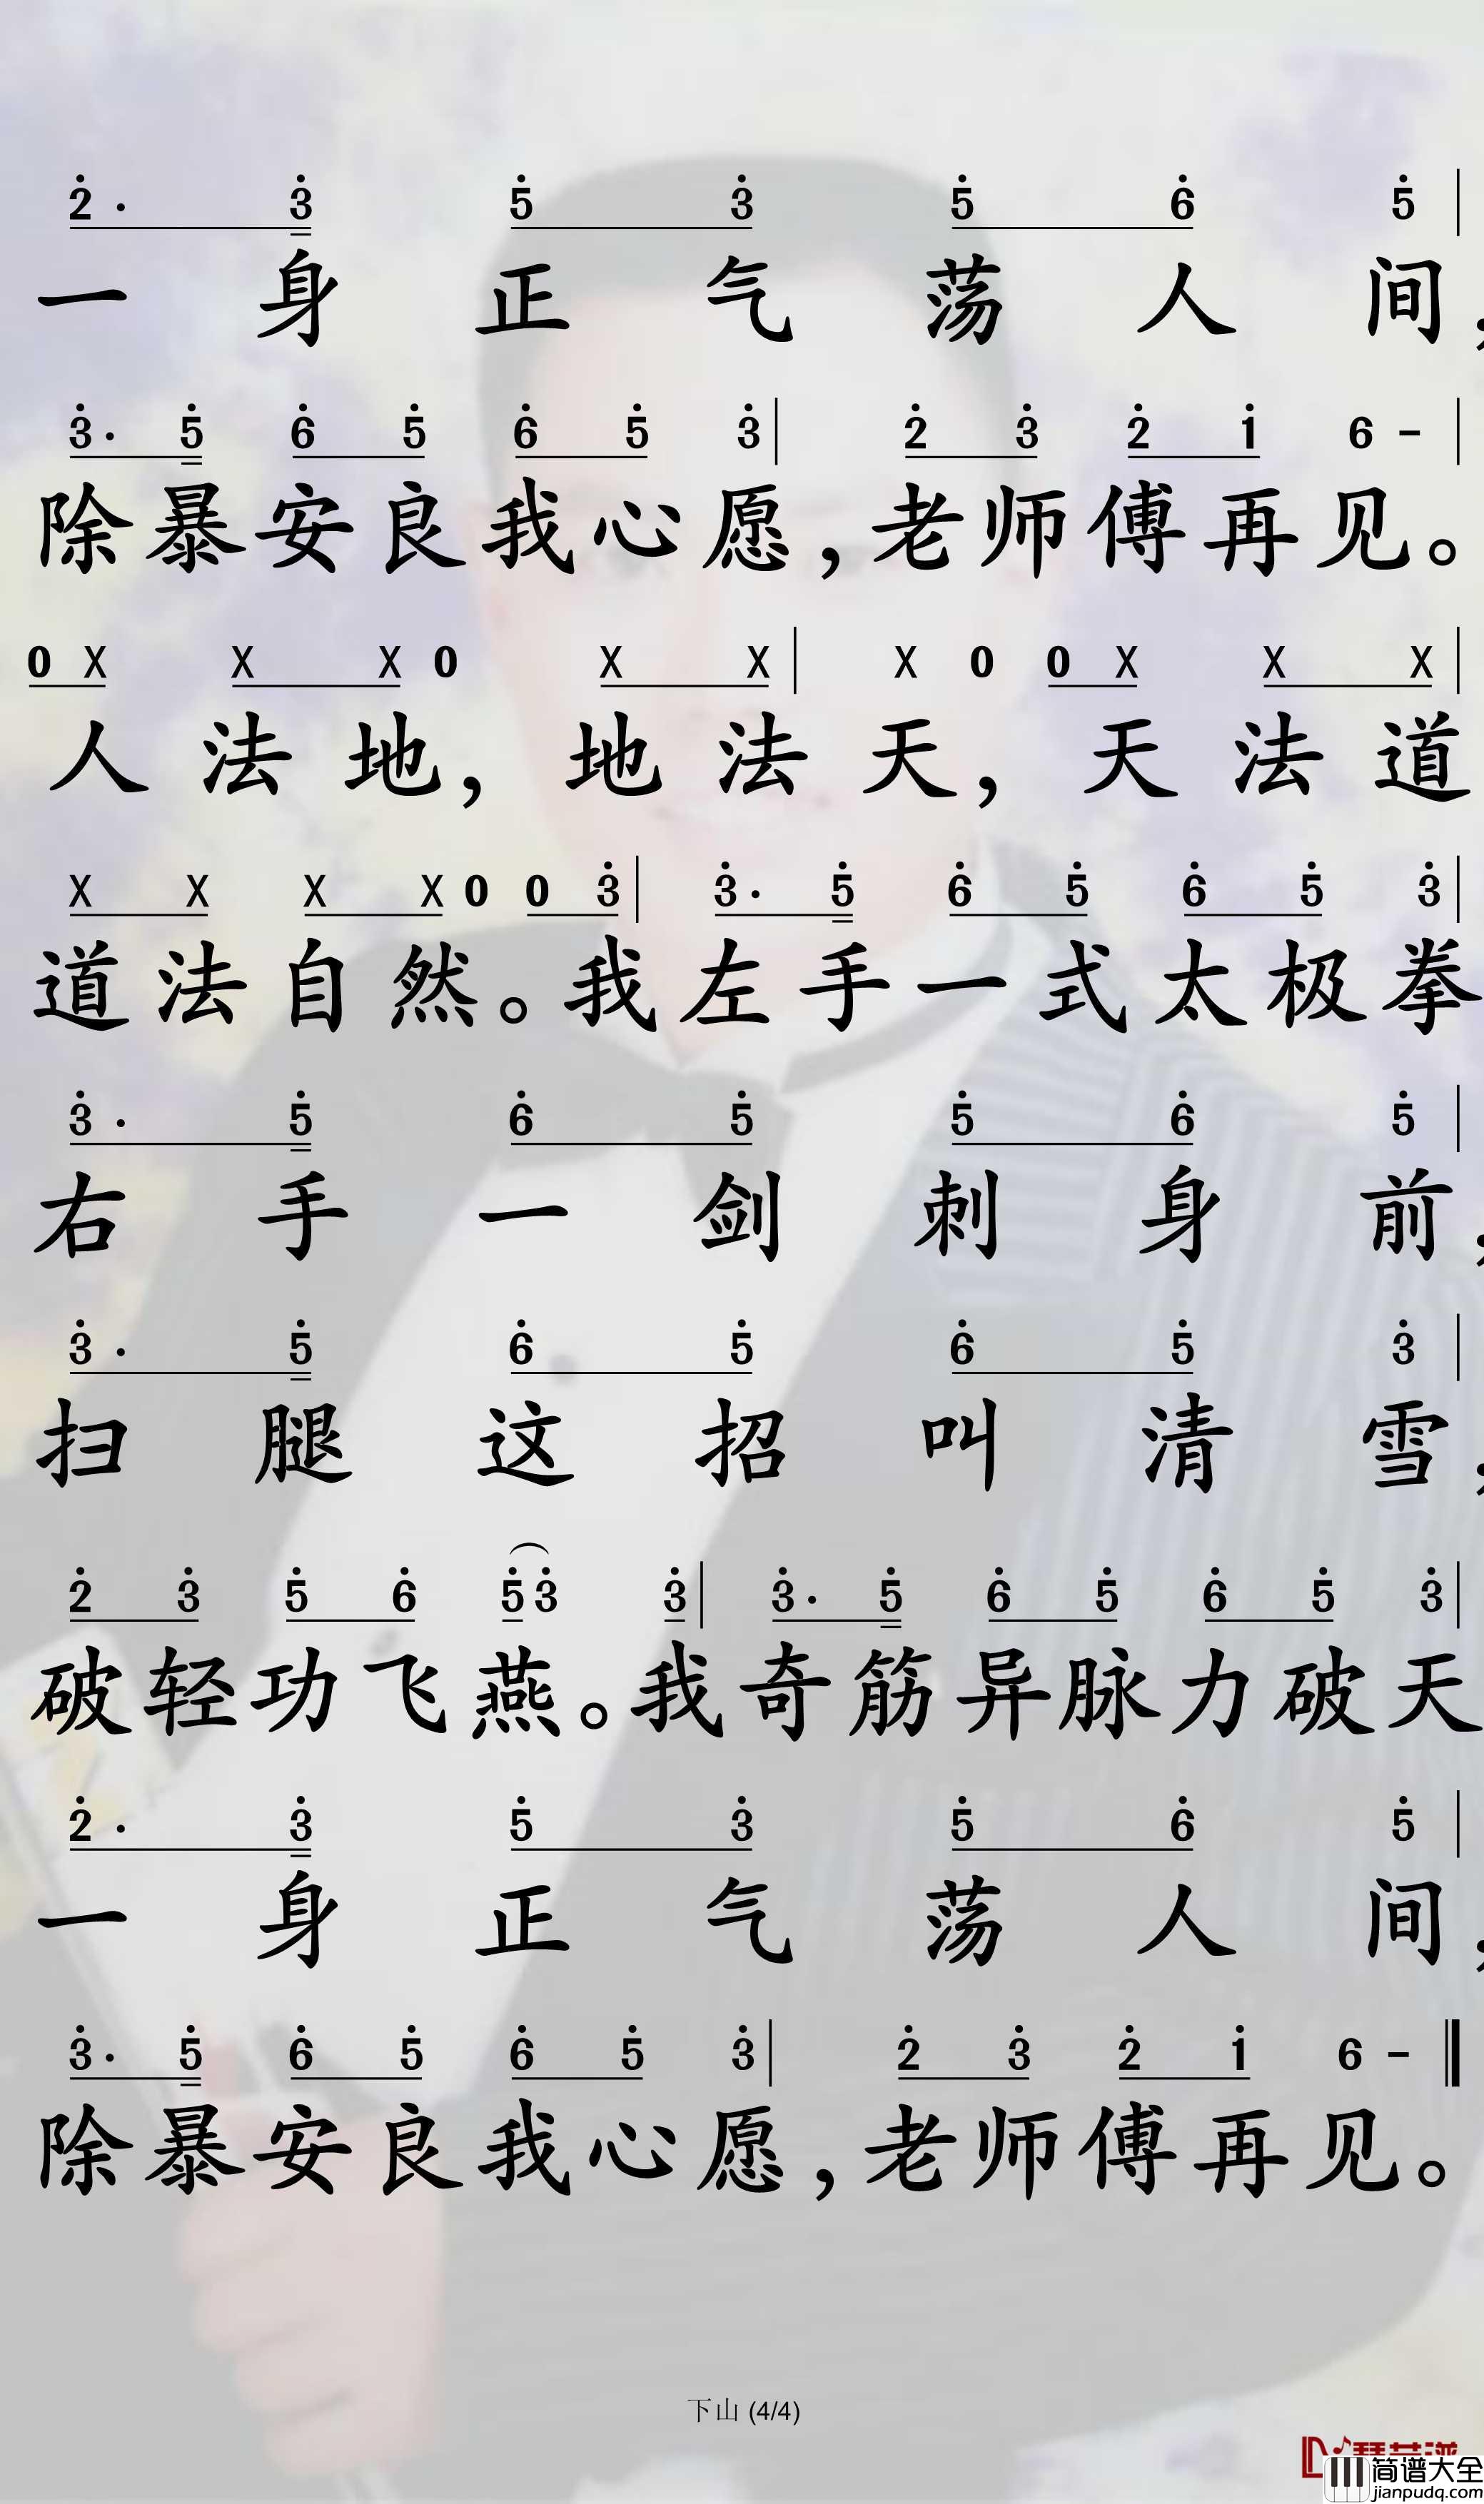 2̇ · 3̇ 5̇ 3̇ 5̇ 6̇ 5̇ |
一身正气荡人间，
3̇ · 5̇ 6̇ 5̇ 6̇ 5̇ 3̇ | 2̇ 3̇ 2̇ 1̇ 6 - |
除暴安良我心愿，老师傅再见。
0 X X X 0 X X | X 0 0 X X X |
人法地，地法天，天法道
X X X X 0 0 3̇ | 3̇ · 5̇ 6̇ 5̇ 6̇ 5̇ 3̇ |
道法自然。我左手一式太极拳
3̇ · 5̇ 6̇ 5̇ 5̇ 6̇ 5̇ |
右手一剑刺身前，
3̇ · 5̇ 6̇ 5̇ 6̇ 5̇ 3̇ |
扫腿这招叫清雪，
2̇ 3̇ 5̇ 6̇ 5̇ 3̇ 3̇ | 3̇ · 5̇ 6̇ 5̇ 6̇ 5̇ 3̇ |
破轻功飞燕。我奇筋异脉力破天
2̇ · 3̇ 5̇ 3̇ 5̇ 6̇ 5̇ |
一身正气荡人间，
3̇ · 5̇ 6̇ 5̇ 6̇ 5̇ 3̇ | 2̇ 3̇ 2̇ 1̇ 6 - ‖
除暴安良我心愿，老师傅再见。
下山 (4/4)
简谱大全
jianpudq.com